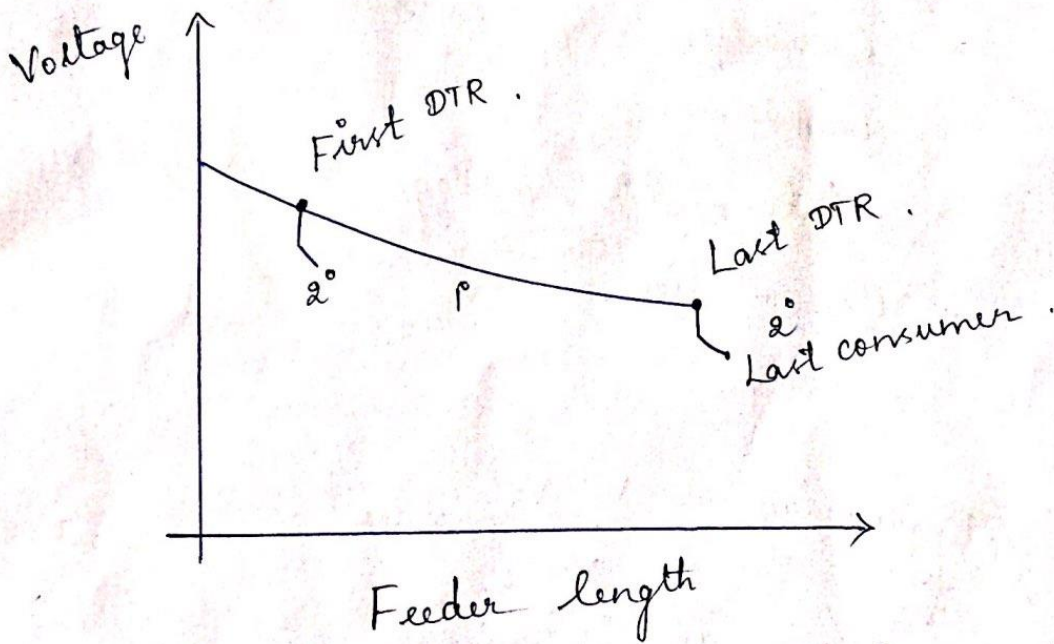 Voltage
First DTR .
2°
1°
Last DTR .
2°
Last consumer .
Feeder length